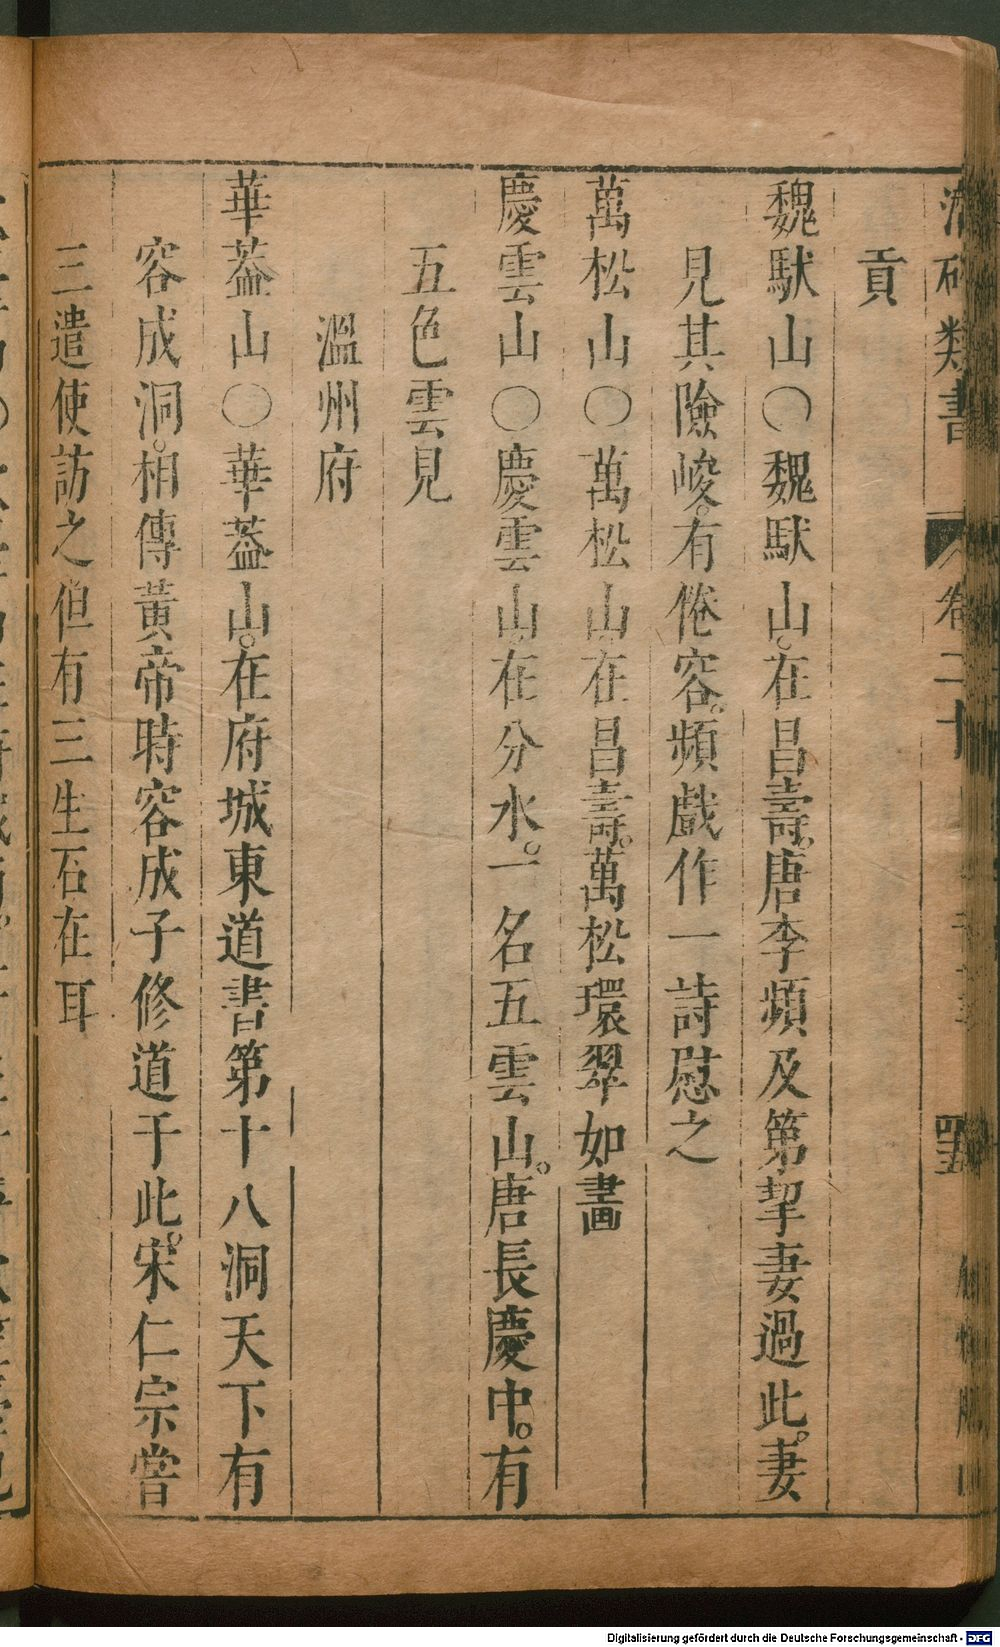 類書 卷二十
貢
魏馱山○魏馱山。在昌壽。唐李頻及第挈妻過此。妻
見其險峻。有倦容。頻戲作一詩慰之
萬松山○萬松山。在昌壽。萬松環翠如畵
慶雲山○慶雲山。在分水。一名五雲山。唐長慶中。有
五色雲見
溫州府
華葢山○華葢山。在府城東道書第十八洞天下有
容成洞。相傳黃帝時容成子修道于此。宋仁宗嘗
三遣使訪之但有三生石在耳
Digitalisierung gefördert durch die Deutsche Forschungsgemeinschaft - DFG